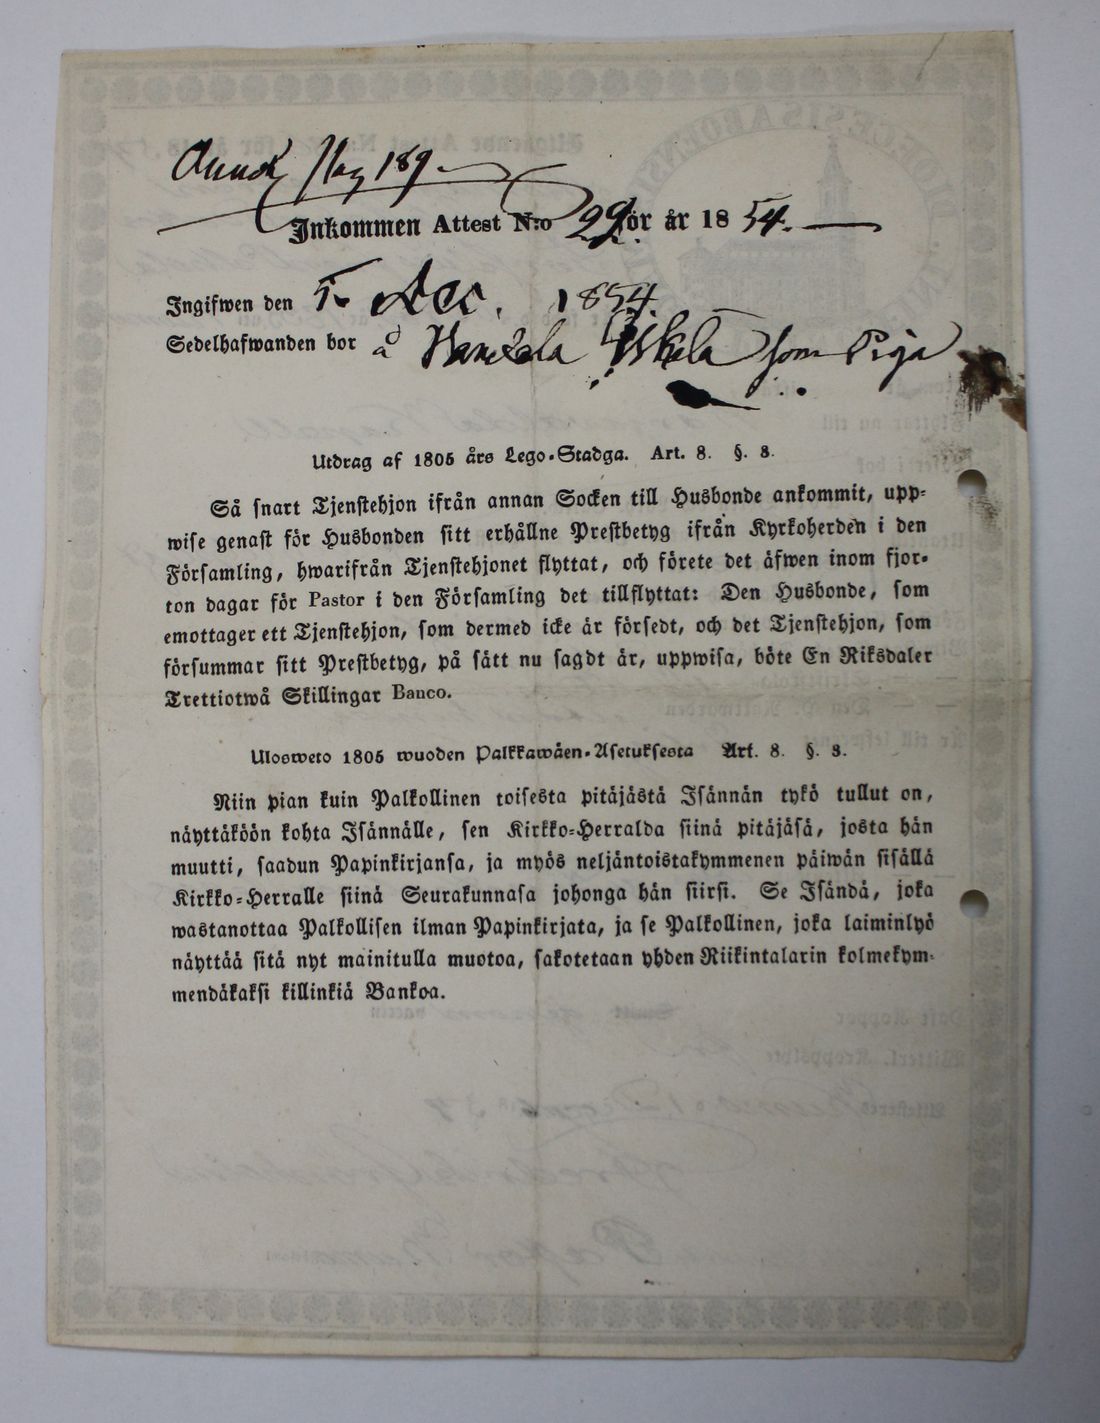 Pag 189.
Inkommen Attest N:o 29 för år 1854.
Ingifwen den 5 Dec. 1854.
Sedelhafwanden bor å Uskela som Piga
Utdrag af 1805 års Lego-Stadga. Art. 8. §. 8.
Så snart Tjenstehjon ifrån annan Socken till Husbonde ankommit, upp-
wise genast för Husbonden sitt erhållne Prestbetyg ifrån Kyrkoherden i den
Församling, hwarifrån Tjenstehjonet flyttat, och förete det äfwen inom fjor-
ton dagar för Pastor i den Församling det tillflyttat: Den Husbonde, som
emottager ett Tjenstehjon, som dermed icke är försedt, och det Tjenstehjon, som
försummar sitt Prestbetyg, på sätt nu sagdt är, uppwisa, böte En Riksdaler
Trettiotwå Skillingar Banco.
Ulosweto 1805 wuoden Palkkawäen-Asetuksesta Art. 8. §. 8.
Niin pian kuin Palkollinen toisesta pitäjästä Isännän tykö tullut on,
näyttäköön kohta Isännälle, sen Kirkko-Herralda siinä pitäjäsä, josta hän
muutti, saadun Papinkirjansa, ja myös neljäntoistakymmenen päiwän sisällä
Kirkko-Herralle siinä Seurakunnasa johonga hän siirsi. Se Isändä, joka
wastanottaa Palkollisen ilman Papinkirjata, ja se Palkollinen, joka laiminlyö
näyttää sitä nyt mainitulla muotoa, sakotetaan yhden Riikintalarin kolmekym-
mendäkaksi killinkiä Bankoa.